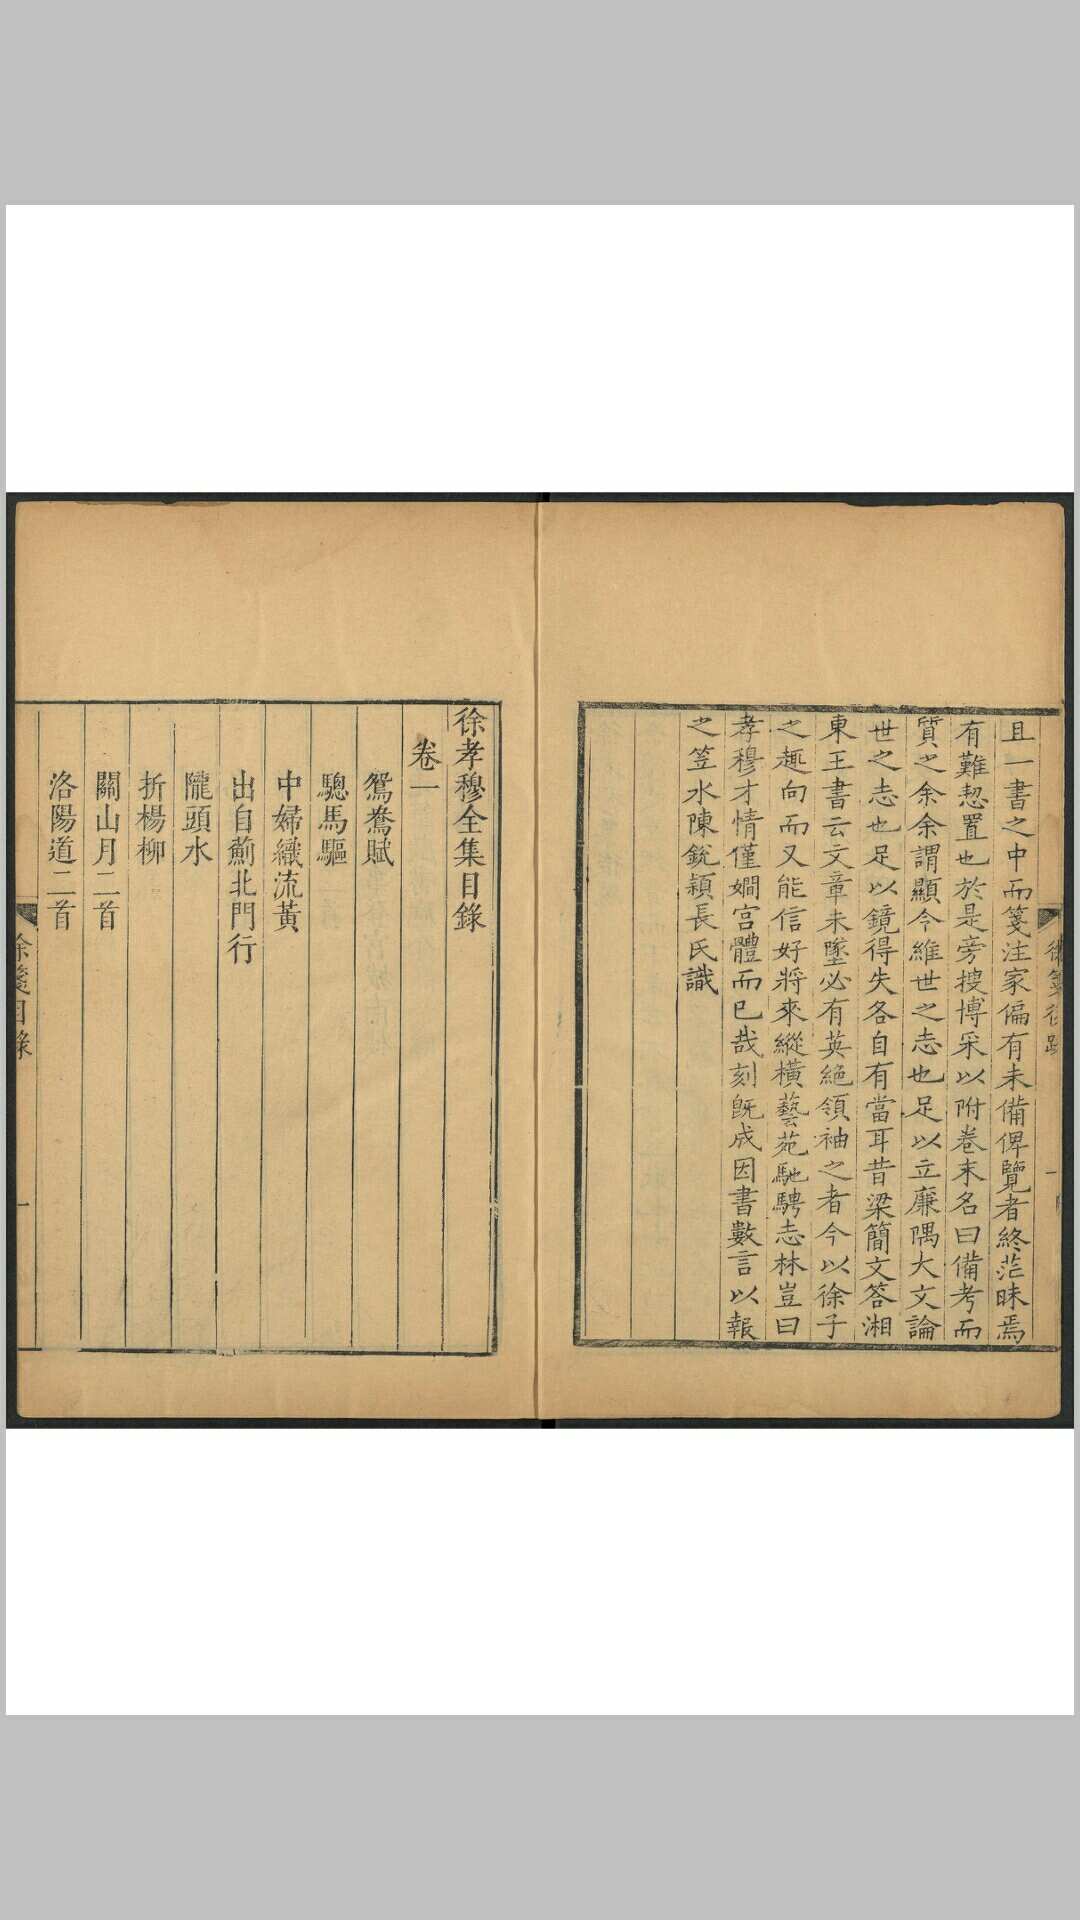 且一書之中而箋注家偏有未備俾覽者終茫昧焉
有難恝置也於是旁搜博采以附卷末名曰備考而
質之余余謂顯今維世之志也足以立廉隅大文論
世之志也足以鏡得失各自有當耳昔梁簡文答湘
東王書云文章未墜必有英絶領袖之者今以徐子
之趣向而又能信好將來縱橫藝苑馳騁志林豈曰
孝穆才情僅嫺宮體而已哉刻既成因書數言以報
之笠水陳銳頴長氏識
徐孝穆全集目錄
卷一
鴛鴦賦
驄馬驅
中婦織流黃
出自薊北門行
隴頭水
折楊柳
關山月二首
洛陽道二首
徐箋目錄
一